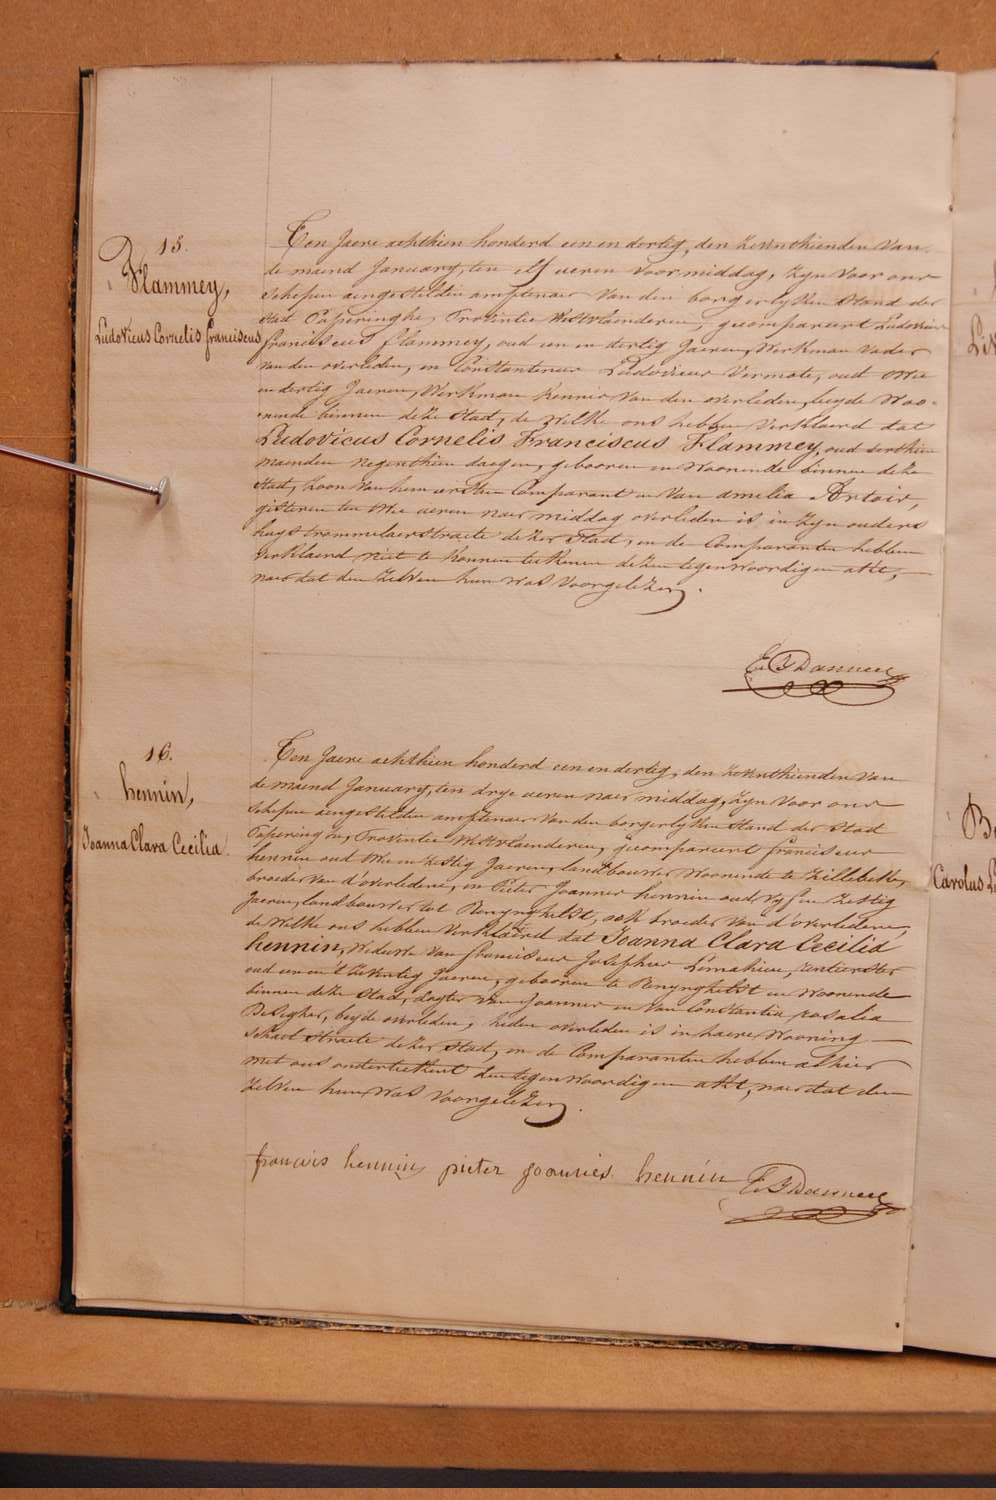 15.
Flammey,
Ludovicus Cornelis franciscus
Ten Jaere achthien honderd een en dertig, den zeventhienden van
de maend January, ten elf ueren voor middag, zyn voor ons
schepen aengestelden amptenaer van den borgerlyken stand der
stad Poperinghe, Provintie Westvlaenderen, gecompareert Ludovicus
franciscus flammey, oud een en dertig Jaeren, Werkman vader
van den overleden, en Constantinus Ludovicus Vermote, oud
en dertig Jaeren, Werkman kennis van den overleden, beyde Woo-
nende binnen deze stad, de Welke ons hebben verklaerd dat
Ludovicus Cornelis Franciscus Flammey, oud derthien
maenden negenthien daegen, gebooren en Woonende binnen deze
stad, zoon van hem eersten Comparant en van amelia
gisteren ten twee ueren naer middag overleden is in zyn ouders
huys trommelaerstraete dezer stad, en de Comparanten hebben
verklaerd niet te konnen teekenen dezen tegenwoordigen akte,
naer dat den zelven hun Was voorgelezen.
16.
hennin,
Joanna Clara Cecilia
Ten Jaere achthien honderd een en dertig, den zeventhienden van
de maend January, ten drye ueren naer middag, zyn voor ons
schepen aengestelden amptenaer van den borgerlyken stand der stad
Poperinghe, Provintie Westvlaenderen, gecompareert franciscus
hennin oud twee en zestig Jaeren, landbouwer Woonende te Zillebeke,
broeder van d'overledene, en Pieter Joannes hennin oud vyf en zestig
Jaeren, landbouwer tot Renynghelst, ook broeder van d'overledene,
de Welke ons hebben verklaerd dat Joanna Clara Cecilia
hennin, Weduwe van franciscus Josephus Lemahieu, rentierster
oud een en t'zeventig Jaeren, gebooren te Renynghelst en Woonende
binnen deze stad, dogter van Joannes en van Constantia rosalia
Deseigher, beyde overleden, heden overleden is in haere Wooning
schaet straete dezer stad, en de Comparanten hebben alhier
met ons onderteekent den tegenwoordigen akt, naer dat den
zelven hun Was voorgelezen.
francis hennin pieter joannes hennin